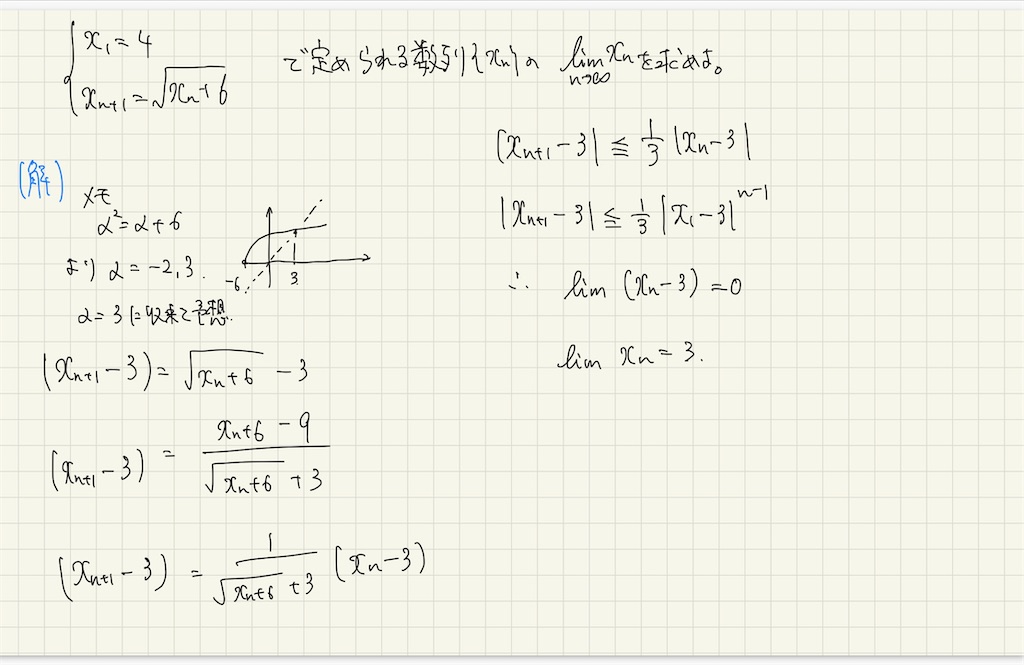 x₁ = 4
xₙ₊₁ = √(xₙ + 6)
で定められる数列{xₙ}の lim xₙを求めよ。
n→∞
(解)
メモ
α² = α + 6
より α = -2, 3.
α = 3 に収束と予想.
-6
3
(xₙ₊₁ - 3) = √(xₙ + 6) - 3
(xₙ₊₁ - 3) = (xₙ + 6 - 9) / (√(xₙ + 6) + 3)
(xₙ₊₁ - 3) = 1 / (√(xₙ + 6) + 3) (xₙ - 3)
|xₙ₊₁ - 3| ≦ 1/3 |xₙ - 3|
|xₙ₊₁ - 3| ≦ 1/3 |x₁ - 3|ⁿ⁻¹
∴ lim (xₙ - 3) = 0
lim xₙ = 3.